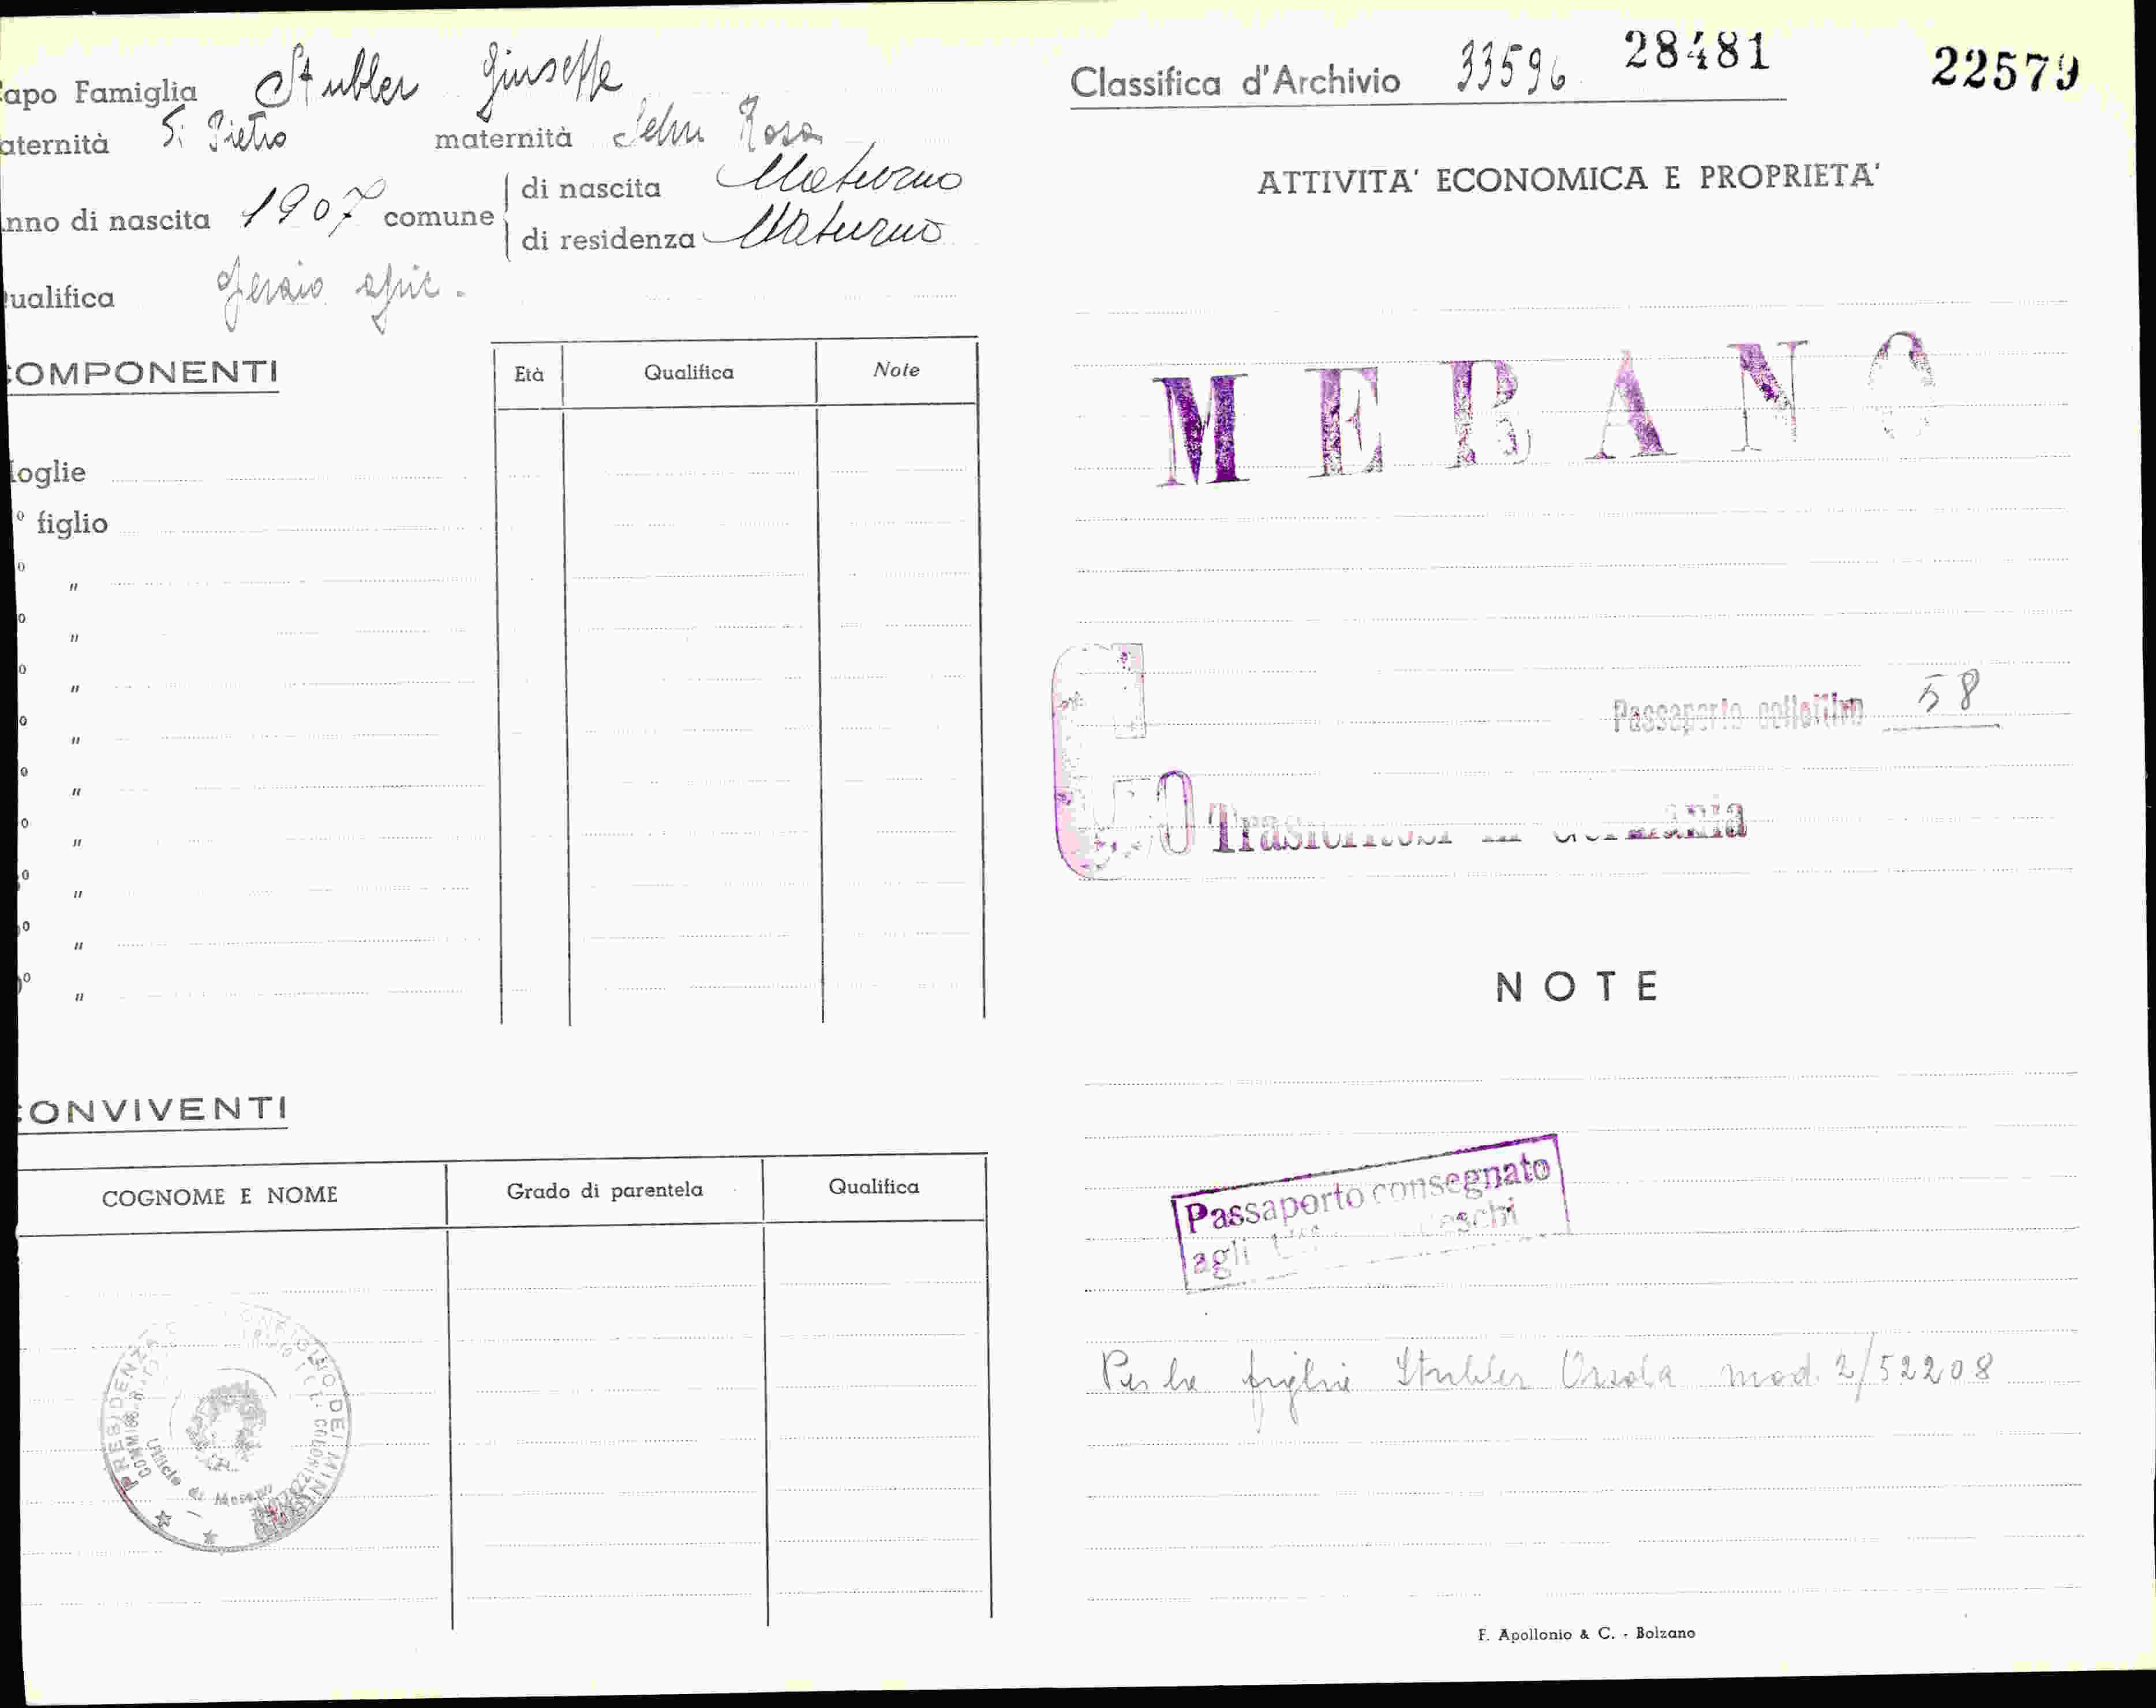 apo Famiglia Stubler Giuseppe
aternità di Pietro maternità Rosa
nno di nascita 1907 comune di nascita Naturno
di residenza Naturno
ualifica agric.
OMPONENTI
Età Qualifica Note
oglie
º figlio
º "
º "
º "
º "
º "
º "
º "
º "
º "
ONVIVENTI
COGNOME E NOME Grado di parentela Qualifica
PRESIDENZA DEL CONSIGLIO DEI MINISTRI
Ufficio di Merano
Classifica d'Archivio 33596 28481 22579
ATTIVITA' ECONOMICA E PROPRIETA'
MERANO
Passaporto collettivo 58
Trasferitosi in Germania
NOTE
Passaporto consegnato
agli
Per la figlia Stubler Orsola mod. 2/52208
F. Apollonio & C. - Bolzano